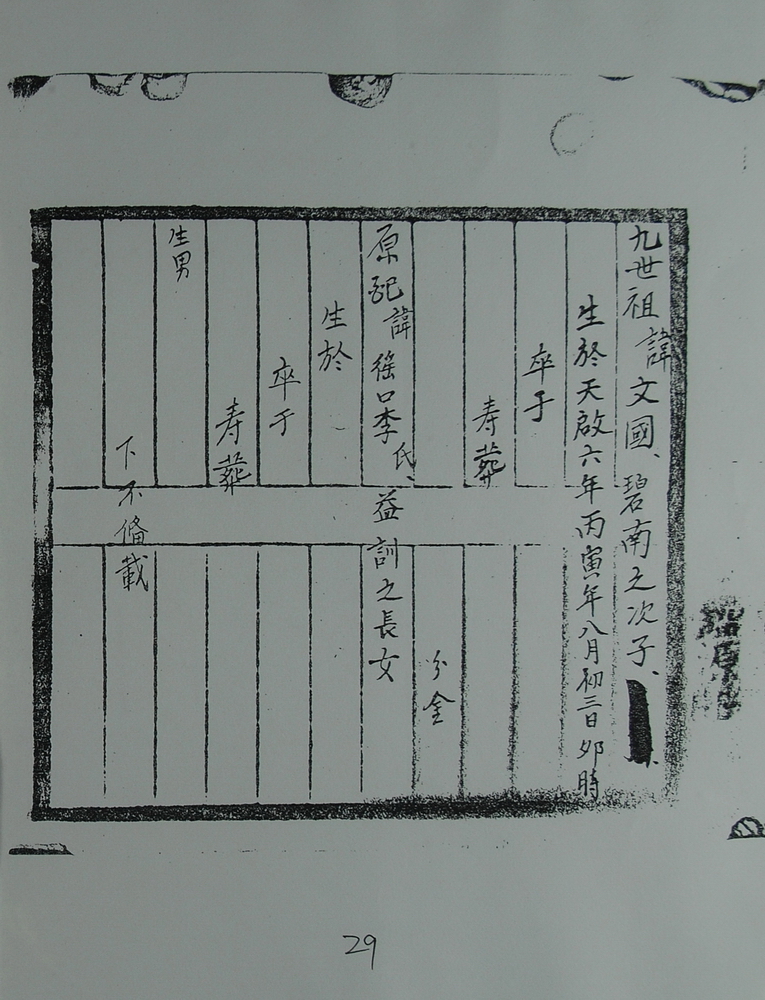 九世祖諱文國、碧南之次子、
生於天啟六年丙寅年八月初三日卯時
卒于
寿葬
分金
原配諱徭口李氏、益訓之長女
生於
卒于
寿葬
生男
下不偹載
29